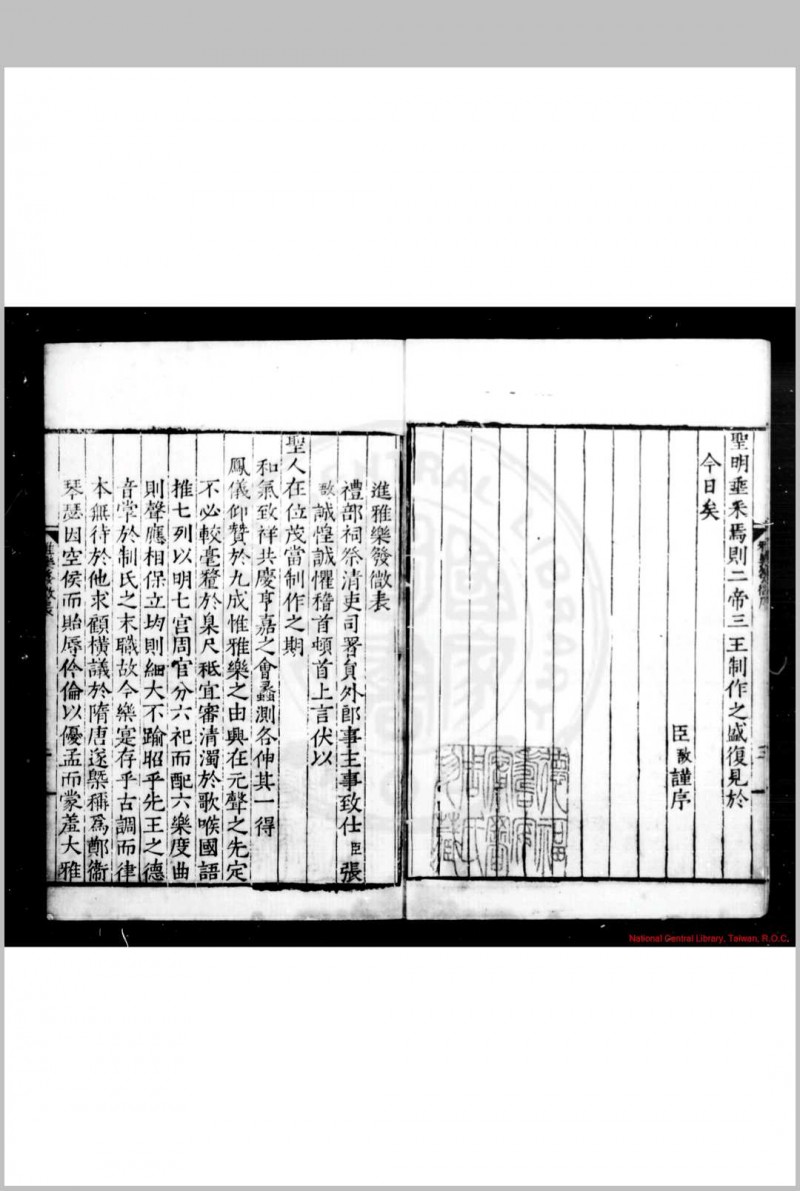 聖明埀采焉則二帝三王制作之盛復見於
今日矣
臣敔謹序
進雅樂發微表
禮部祠祭清吏司署員外郎事主事致仕臣張
敔誠惶誠懼稽首頓首上言伏以
聖人在位茂當制作之期
和氣致祥共慶亨嘉之會蠡測各伸其一得
鳳儀仰贊於九成惟雅樂之由興在元聲之先定
不必較毫釐於臬尺秪宜審清濁於歌喉國語
推七列以明七宮周官分六祀而配六樂度曲
則聲應相保立均則細大不踰昭乎先王之德
音掌於制氏之末職故今樂寔存乎古調而律
本無待於他求顧橫議於隋唐遂槩稱為鄭衞
琴瑟因空侯而貽辱伶倫以優孟而蒙羞大雅
雅樂發微表
National Central Library, Taiwan, R.O.C.